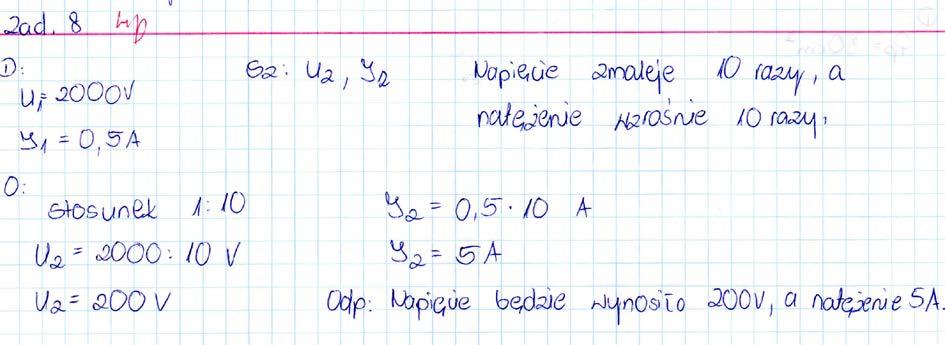 Zad. 8 4p
D:
U₁=2000V
I₁ = 0,5A
Sz: U₂, I₂
Napięcie zmaleje 10 razy, a
natężenie wzrośnie 10 razy.
O:
stosunek 1:10
U₂ = 2000:10 V
U₂ = 200V
I₂ = 0,5 · 10 A
I₂ = 5A
Odp: Napięcie będzie wynosiło 200V, a natężenie 5A.